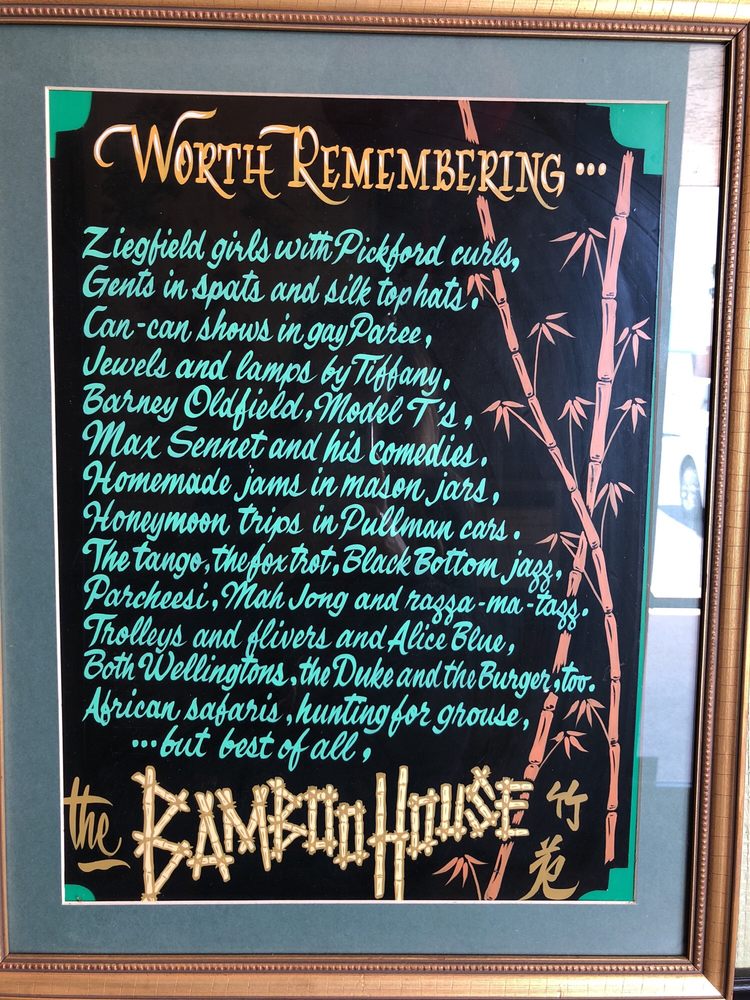 WORTH REMEMBERING...
Ziegfield girls with Pickford curls,
Gents in spats and silk top hats.
Can-can shows in gay Paree,
Jewels and lamps by Tiffany.
Barney Oldfield, Model T's,
Max Sennet and his comedies.
Homemade jams in mason jars,
Honeymoon trips in Pullman cars.
The tango, the fox trot, Black Bottom jazz,
Parcheesi, Mah Jong and razza-ma-tazz.
Trolleys and flivers and Alice Blue,
Both Wellingtons, the Duke and the Burger, too.
African safaris, hunting for grouse,
...but best of all,
the BAMBOO HOUSE
竹苑